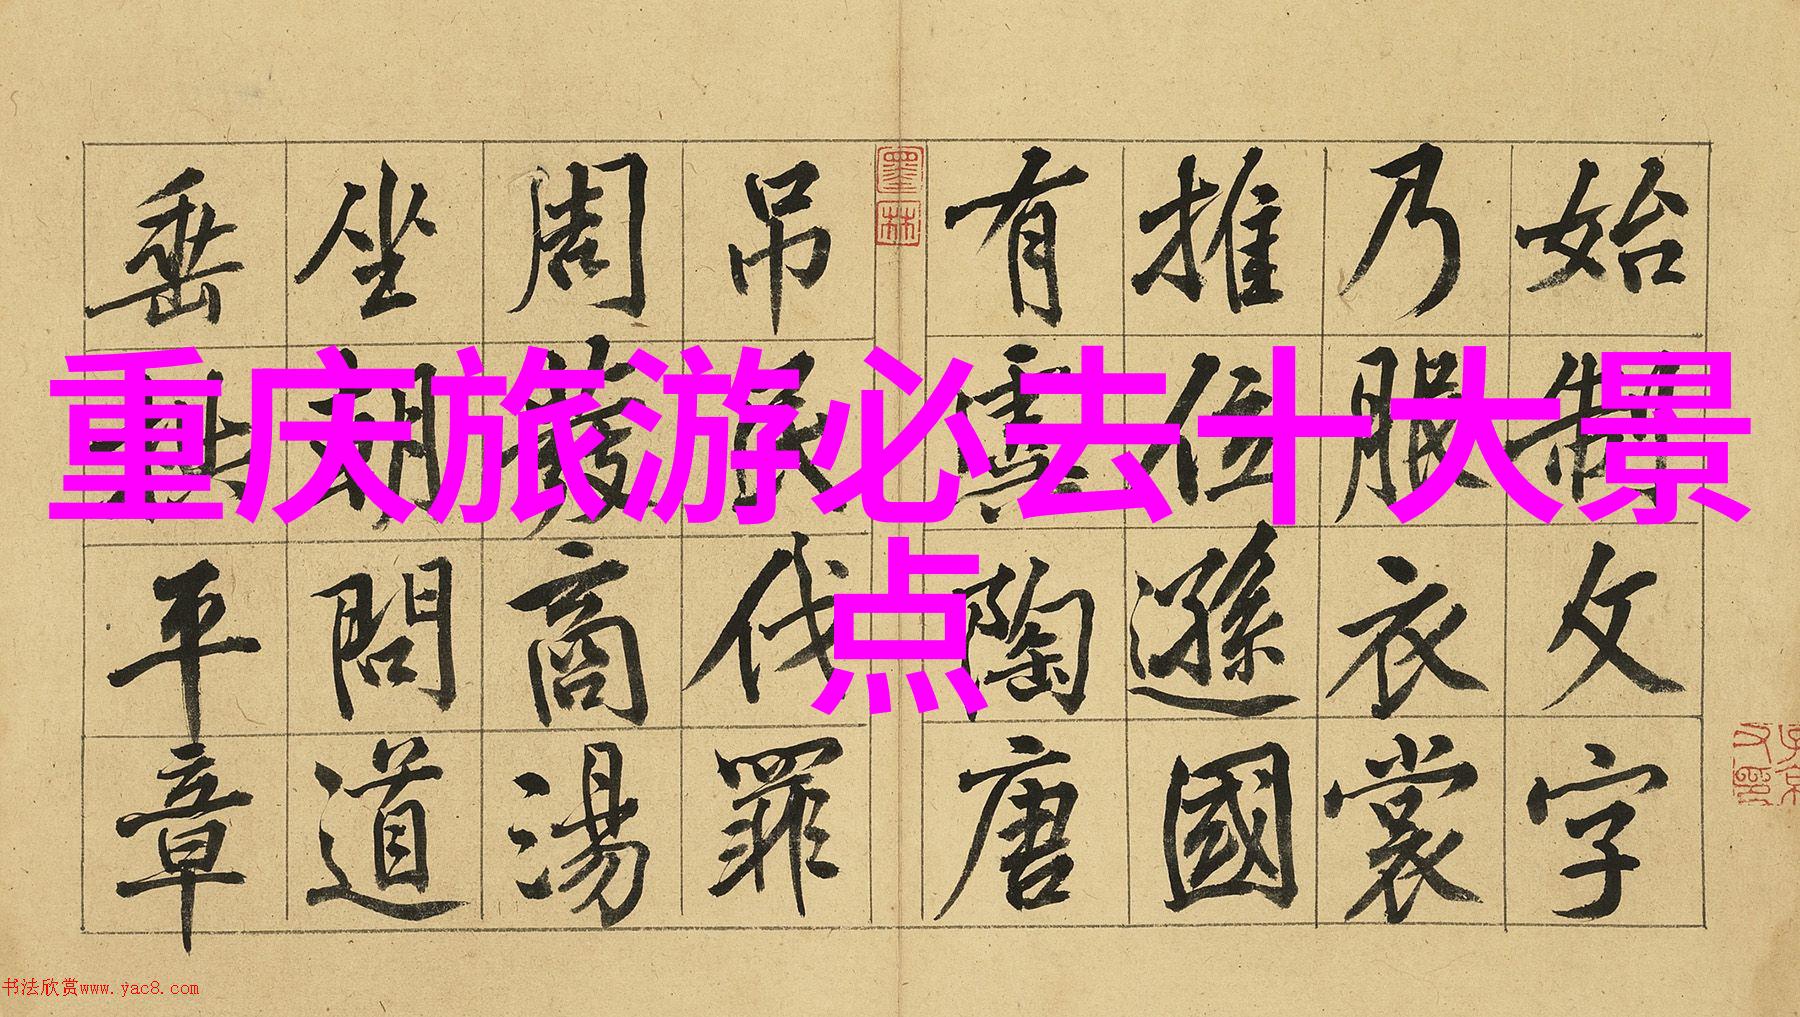 重庆旅游必去十大景
点
始制文字
乃服衣裳
推位遜國
有虞陶唐
墨林
吊民伐罪
周發商湯
坐朝問道
垂拱平章
书法欣赏www.yac8.com